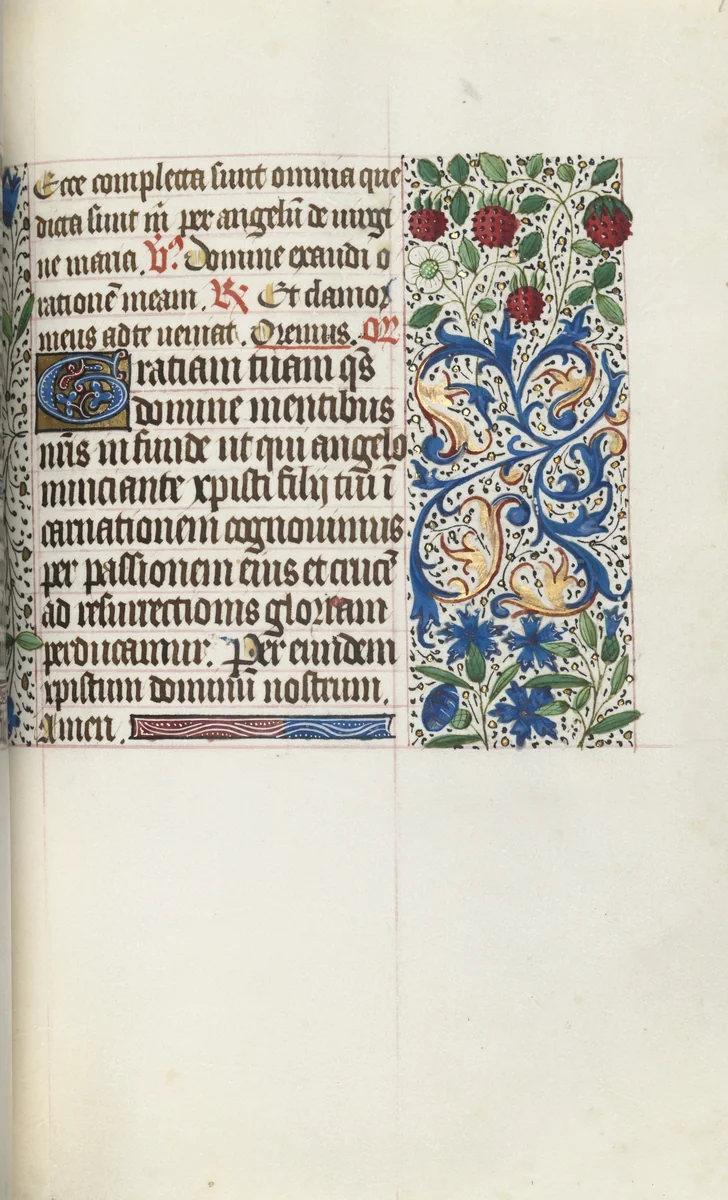 Ecce completa sunt omnia que
dicta sunt ī per angelū de virgi
ne maria. V̄. Domine exaudi o
rationē meam. R̄ Et clamor
meus ad te veniat. Oremus. Or̄
Gratiam tuam q̄s
domine mentibus
nr̄is infunde ut qui angelo
nunciante xpisti filij tui ī
carnationem cognovimus
per passionem eius et crucē
ad resurrectionis gloriam
perducamur. Per eundem
xpistum dominū nostrum.
Amen.